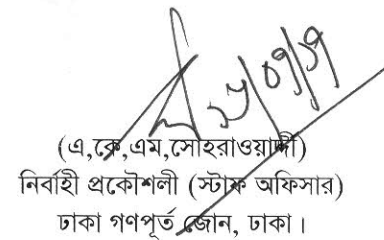 (এ,কে,এম,সোহরাওয়ার্দী)
নির্বাহী প্রকৌশলী (স্টাফ অফিসার)
ঢাকা গণপূর্ত জোন, ঢাকা।